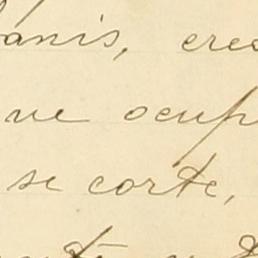 anis, cres
ve ocup
se corte,